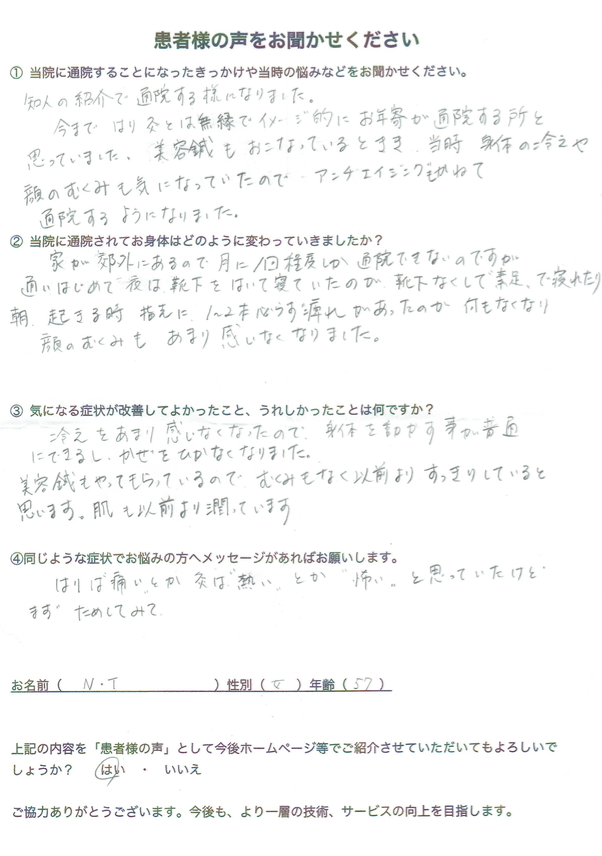 患者様の声をお聞かせください
① 当院に通院することになったきっかけや当時の悩みなどをお聞かせください。
知人の紹介で通院する様になりました。
今まではり灸とは無縁でイメージ的にお年寄が通院する所と
思っていました、美容鍼もおこなっているときき、当時 身体の冷えや
顔のむくみも気になっていたので アンチエイジングもかねて
通院するようになりました。
② 当院に通院されてお身体はどのように変わっていきましたか？
家が郊外にあるので月に1回程度しか通院できないのですが
通いはじめて夜は靴下をはいて寝ていたのが、靴下なくして素足で寝れたり
朝 起きる時 指先に、1~2本必らず痺れがあったのが 何もなくなり
顔のむくみも あまり感じなくなりました。
③ 気になる症状が改善してよかったこと、うれしかったことは何ですか？
冷えをあまり感じなくなったので、身体を動かす事が普通
にできるし、かぜをひかなくなりました。
美容鍼もやってもらっているので、むくみもなく以前よりすっきりしていると
思います。肌も以前より潤っています
④同じような症状でお悩みの方へメッセージがあればお願いします。
はりは"痛い"とか 灸は"熱い"とか "怖い"と思っていたけど
まず ためしてみて
お名前（ N・T ）性別（ 女 ）年齢（ 57 ）
上記の内容を「患者様の声」として今後ホームページ等でご紹介させていただいてもよろしいで
しょうか？ はい ・ いいえ
ご協力ありがとうございます。今後も、より一層の技術、サービスの向上を目指します。